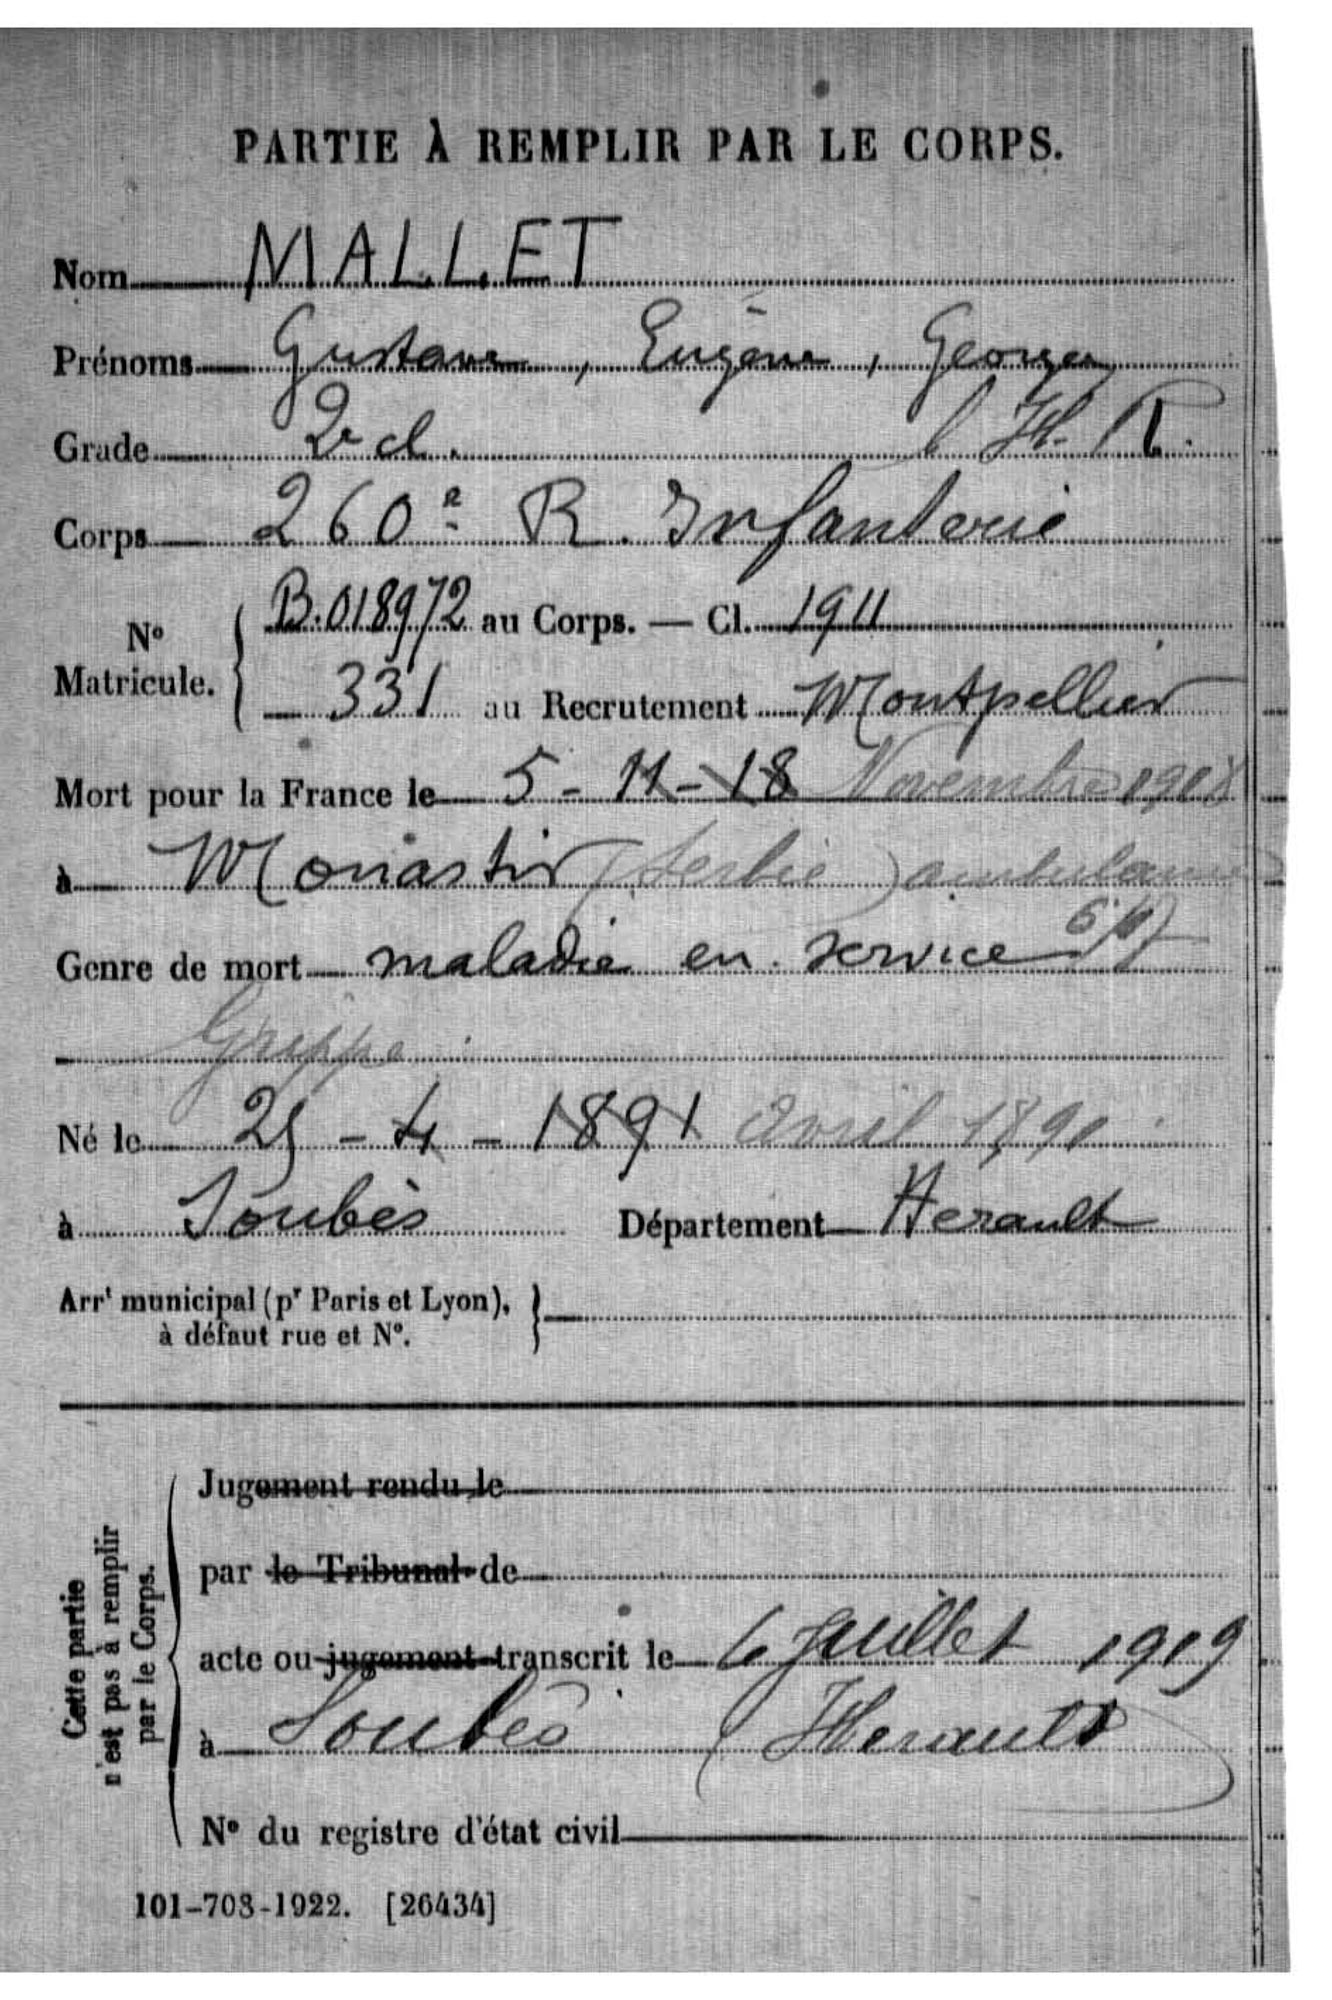 PARTIE À REMPLIR PAR LE CORPS.
Nom MALLET
Prénoms Gustave, Eugène, Georges
Grade 2e cl. H. R.
Corps 260e R. Infanterie
No Matricule. B.018972 au Corps. — Cl. 1911
331 au Recrutement Montpellier
Mort pour la France le 5 - 11 - 18 Novembre 1918
à Monastir (Serbie) ambulance
Genre de mort maladie en service
Grippe
Né le 25 - 4 - 1891 avril 1891
à Soubès Département Herault
Arrt municipal (pr Paris et Lyon),
à défaut rue et No.
Cette partie
n'est pas à remplir
par le Corps.
Jugement rendu le
par le Tribunal de
acte ou jugement transcrit le 6 Juillet 1919
à Soubès (Herault)
No du registre d'état civil
101-708-1922. [26434]